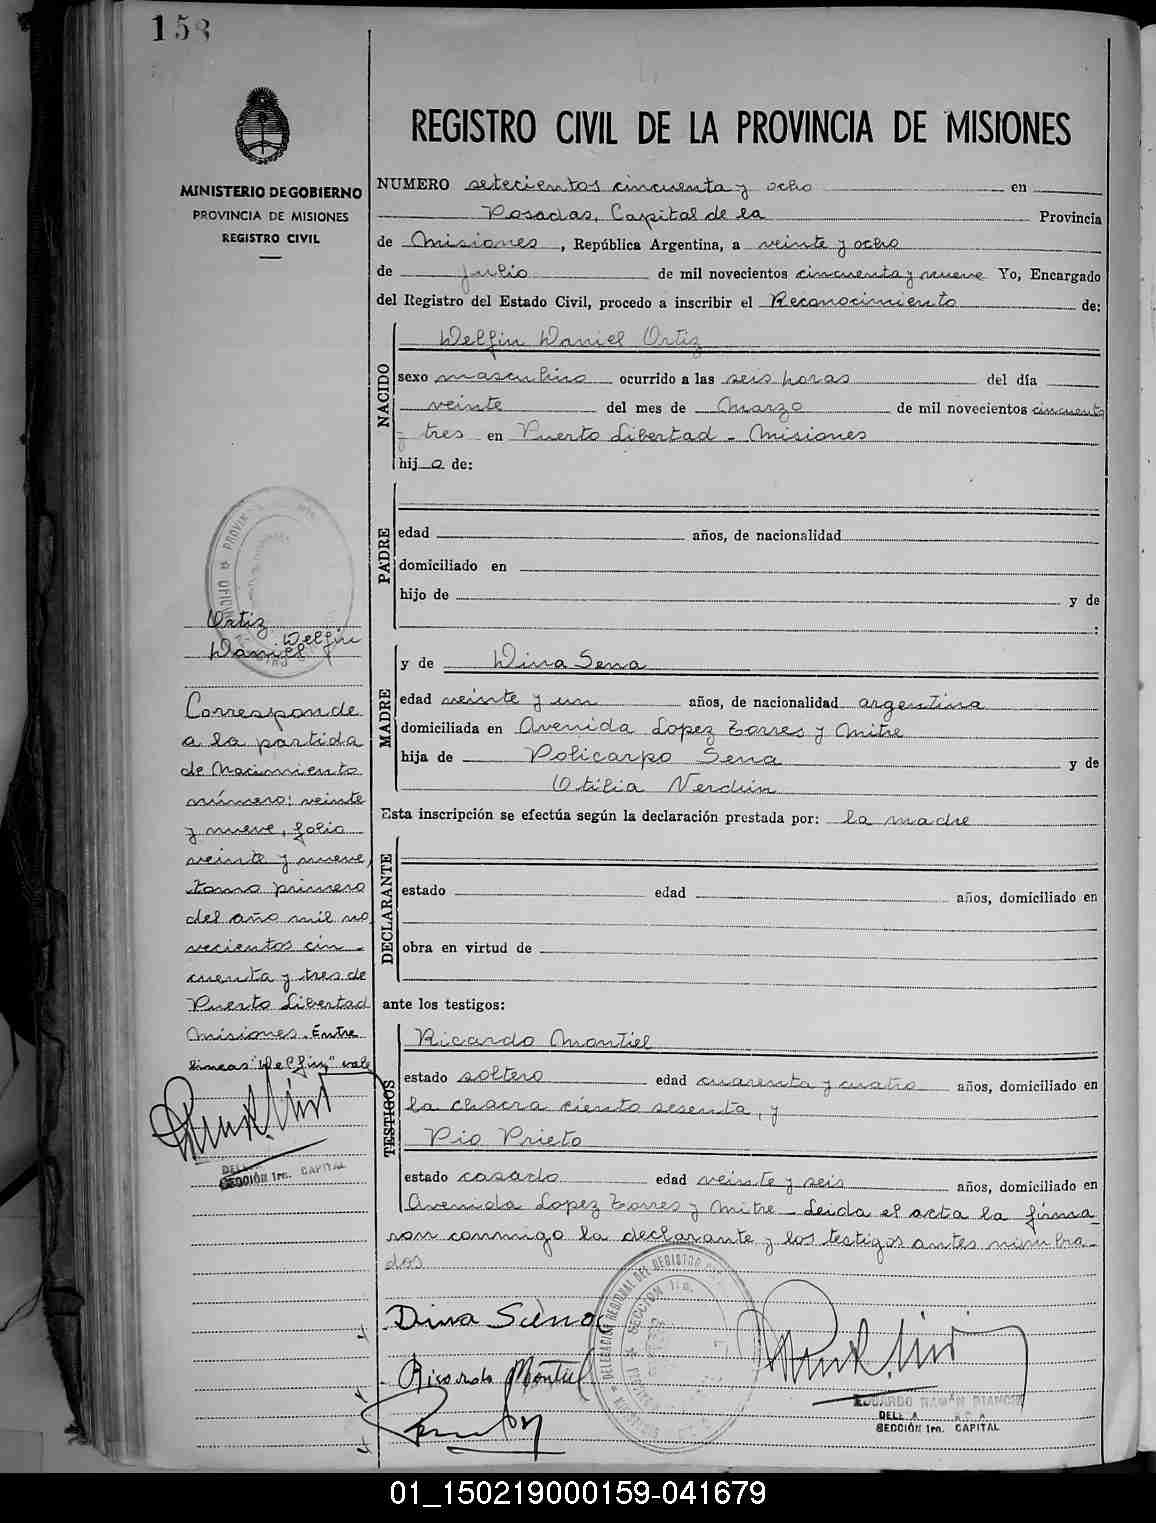 158
MINISTERIO DE GOBIERNO
PROVINCIA DE MISIONES
REGISTRO CIVIL
REGISTRO CIVIL DE LA PROVINCIA DE MISIONES
NUMERO setecientos cincuenta y ocho en
Posadas, Capital de la Provincia
de Misiones, República Argentina, a veinte y ocho
de Julio de mil novecientos cincuenta y nueve Yo, Encargado
del Registro del Estado Civil, procedo a inscribir el Reconocimiento de:
NACIDO
Delfin Daniel Ortiz
sexo masculino ocurrido a las seis horas del día
veinte del mes de Marzo de mil novecientos cincuenta
y tres en Puerto Libertad - Misiones
hijo de:
PADRE
edad años, de nacionalidad
domiciliado en
hijo de y de
:
MADRE
y de Dina Sena
edad veinte y un años, de nacionalidad argentina
domiciliada en Avenida Lopez Torres y Mitre
hija de Policarpo Sena y de
Otilia Verdún
Esta inscripción se efectúa según la declaración prestada por: la madre
DECLARANTE
estado edad años, domiciliado en
obra en virtud de
ante los testigos:
TESTIGOS
Ricardo Montiel
estado soltero edad cuarenta y cuatro años, domiciliado en
la chacra ciento sesenta, y
Pio Prieto
estado casado edad veinte y seis años, domiciliado en
Avenida Lopez Torres y Mitre - Leida el acta la firma-
ron conmigo la declarante y los testigos antes nombra-
dos
Dina Sena
Ricardo Montiel
SECCIÓN 1ra. CAPITAL
Ortiz
Delfin
Daniel
Corresponde
a la partida
de Nacimiento
número: veinte
y nueve, folio
veinte y nueve,
tomo primero
del año mil no
vecientos cin-
cuenta y tres de
Puerto Libertad
Misiones. Entre
lineas "Delfin" vale
SECCIÓN 1ra. CAPITAL
01_150219000159-041679